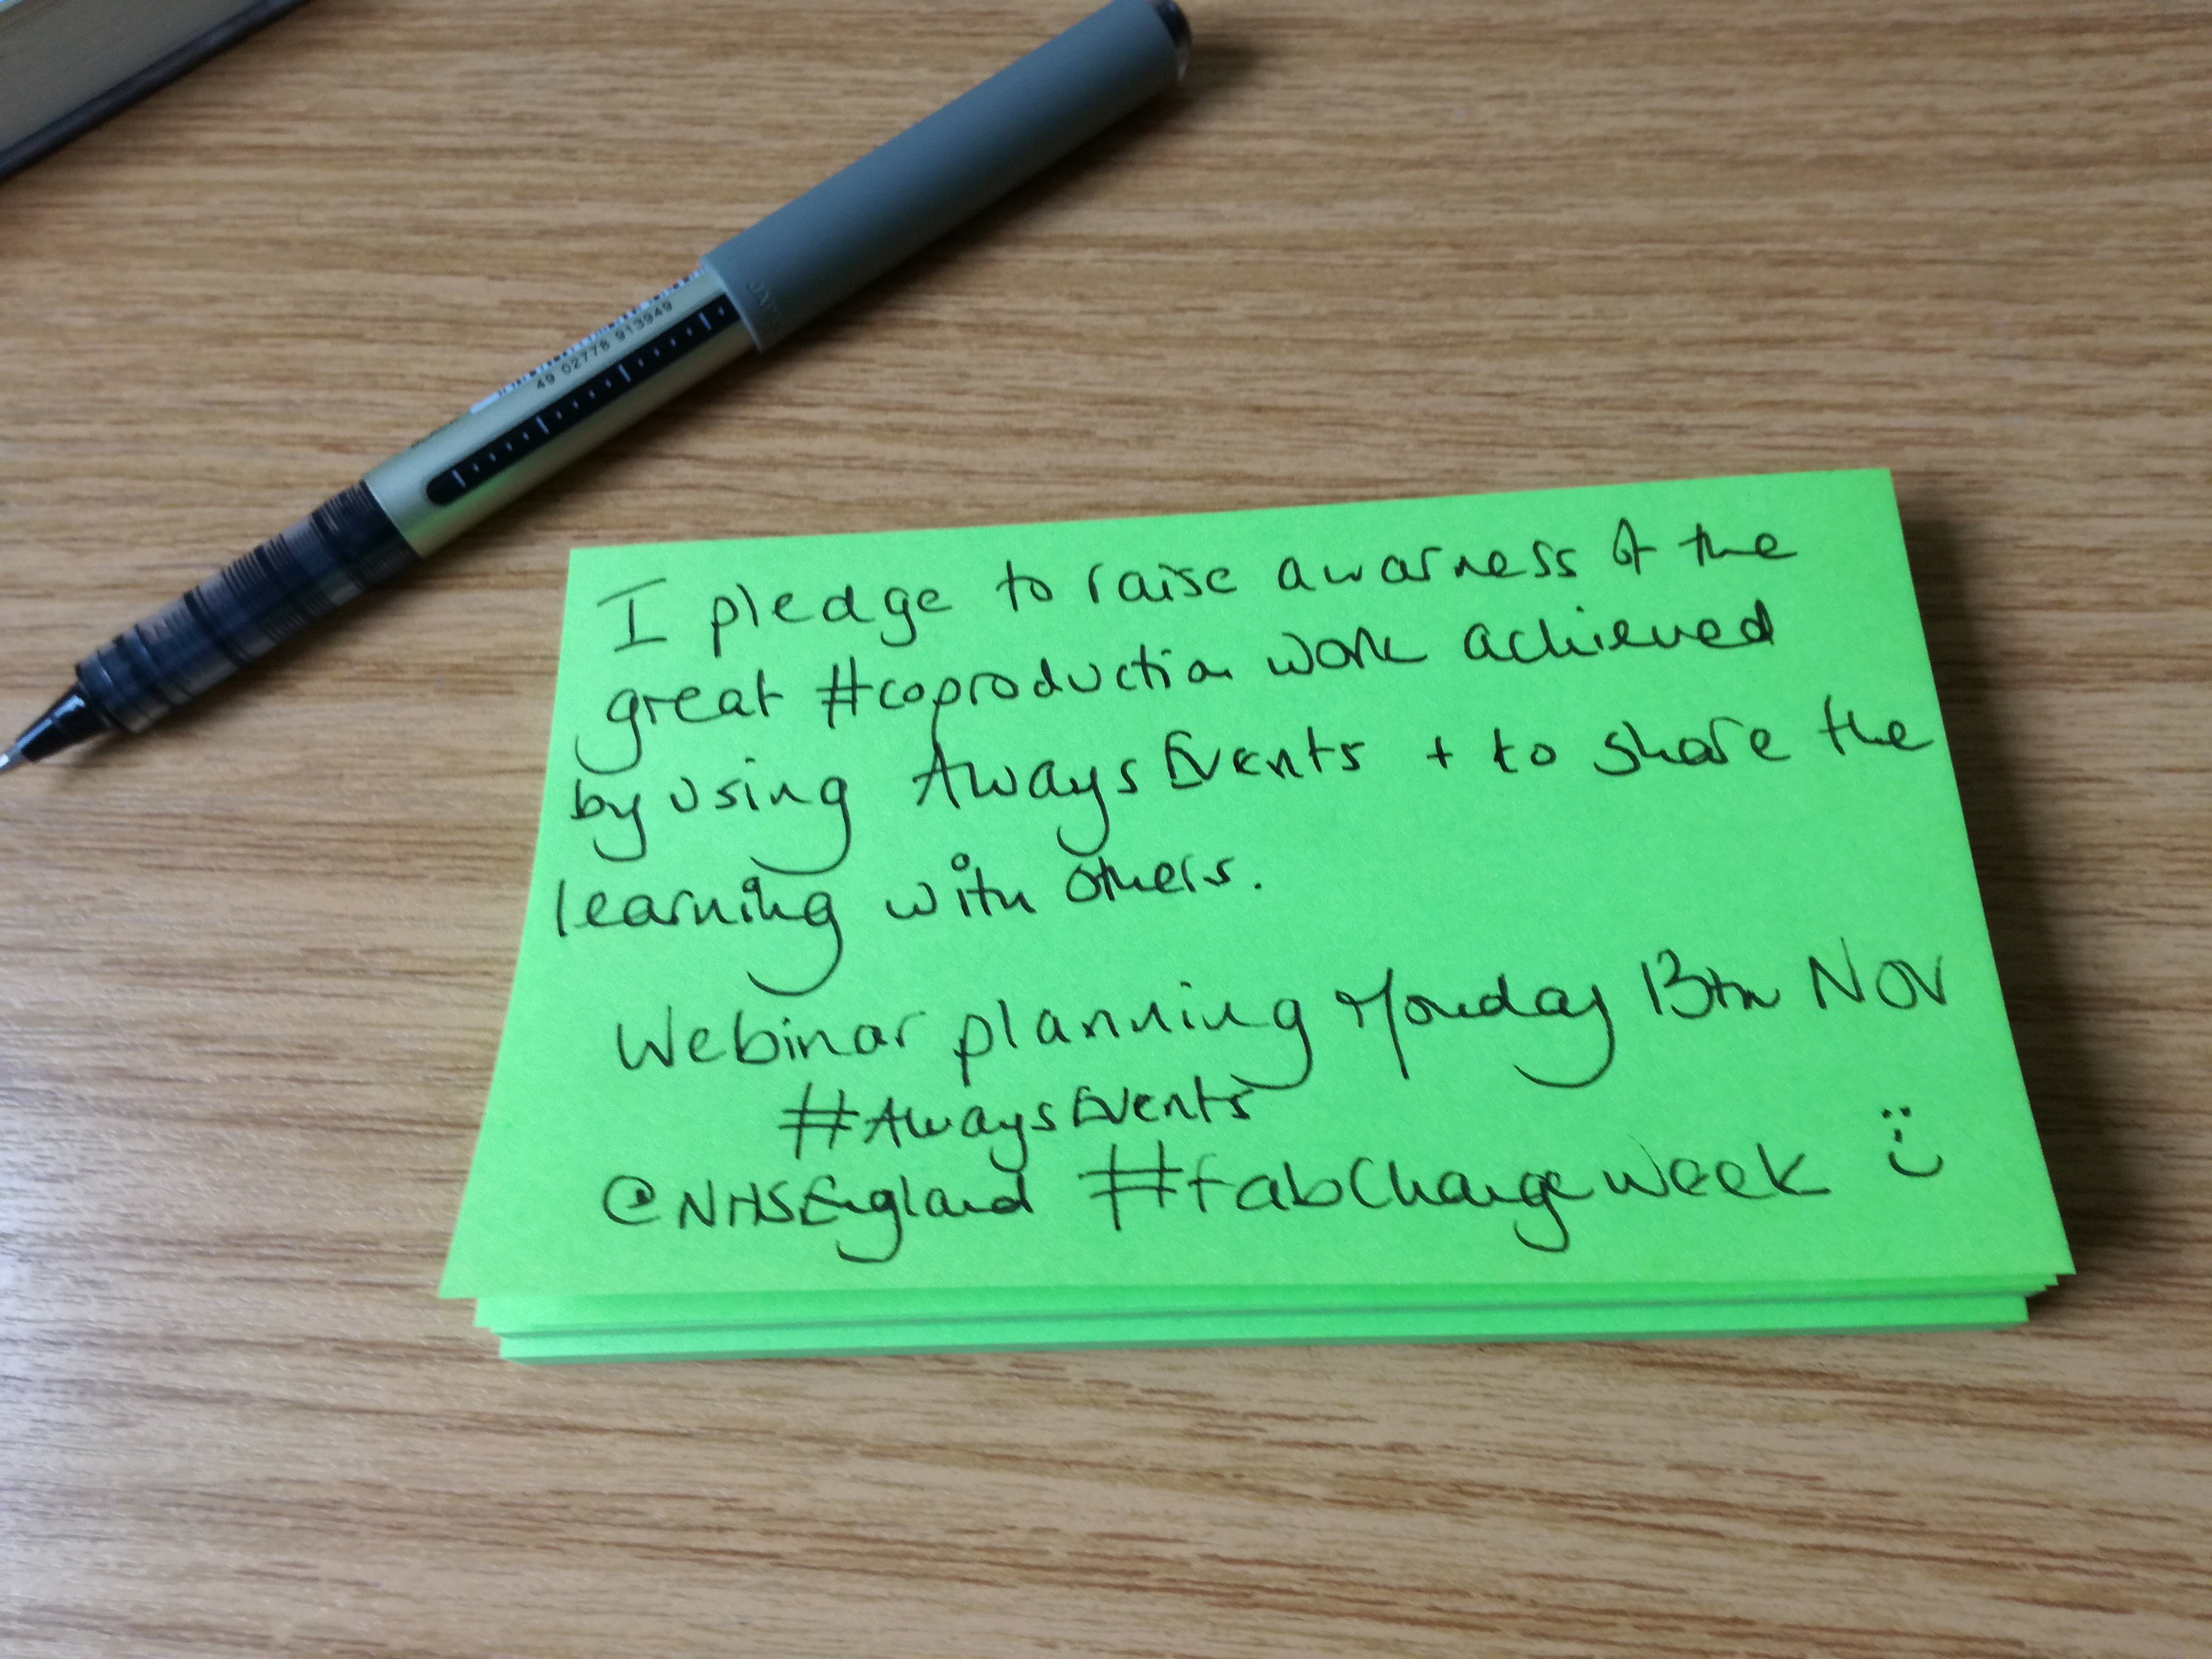 49 02778 913949
JAPAN
I pledge to raise awarness of the
great #coproduction work achieved
by using AwaysEvents + to share the
learning with others.
Webinar planning Monday 13th Nov
#AwaysEvents
@NHSEngland #fabChangeWeek